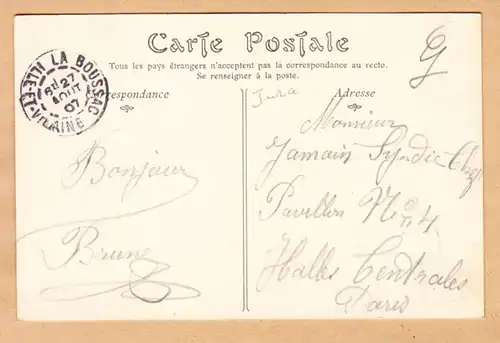 Carte Postale
Tous les pays étrangers n'acceptent pas la correspondance au recto.
Se renseigner à la poste.
LA BOUSSAC
27
AOUT
07
ILLE-ET-VILAINE
Correspondance
Adresse
Jura
Bonjour
Brune
Monsieur
Jamain Syndic
Pavillon No 4
Halles Centrales
Paris